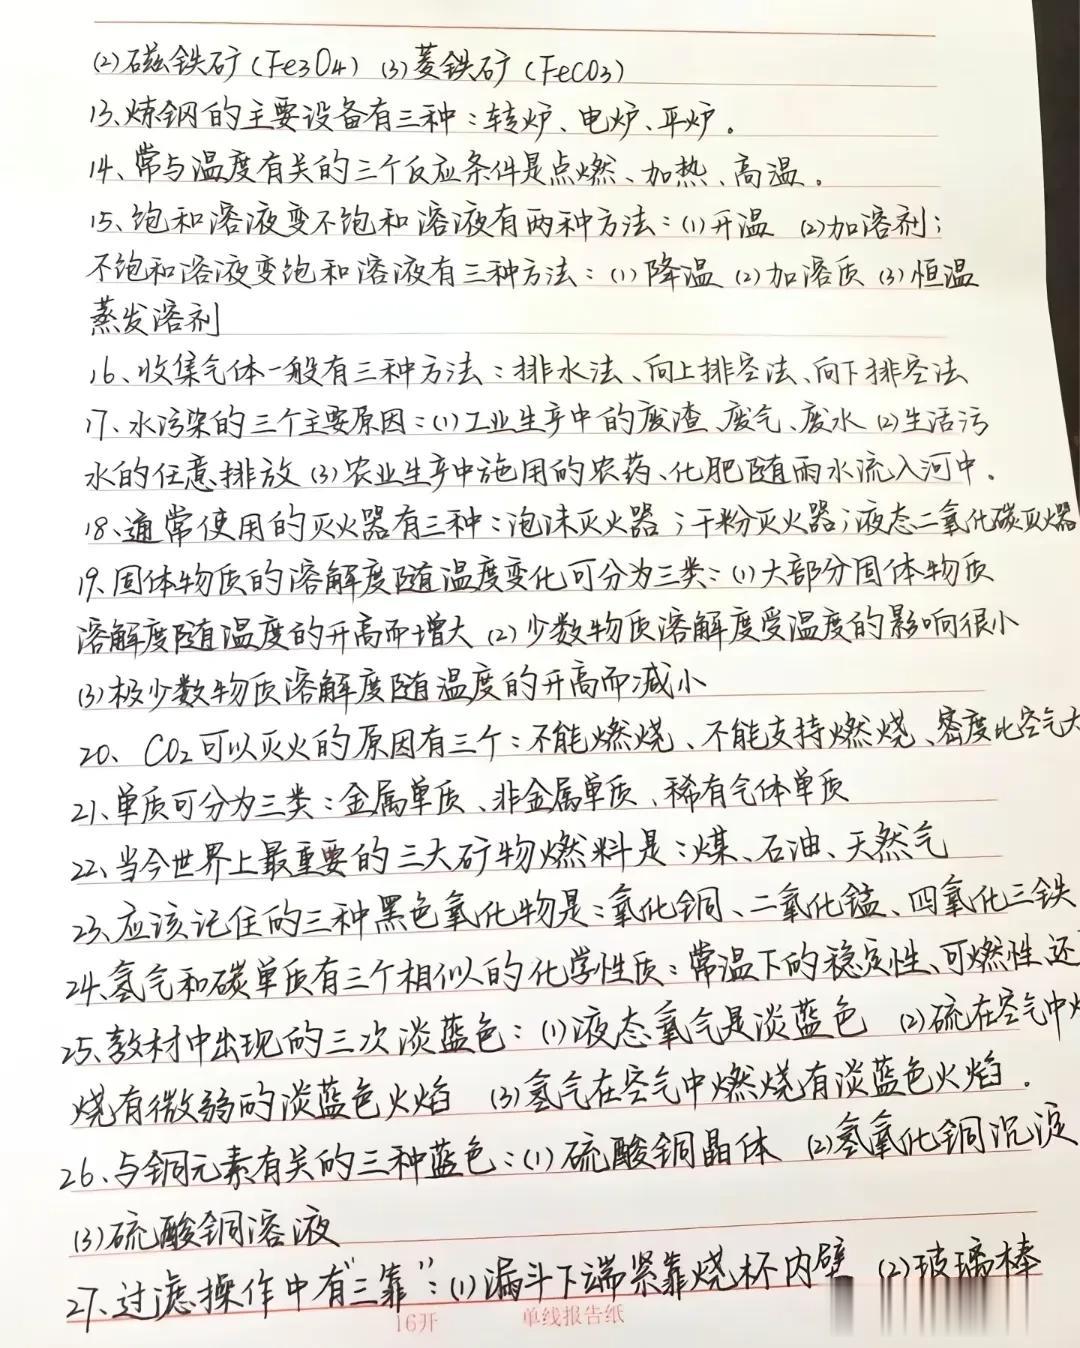 (2)磁铁矿(Fe3O4) (3)菱铁矿(FeCO3)
13、炼钢的主要设备有三种：转炉、电炉、平炉。
14、常与温度有关的三个反应条件是点燃、加热、高温。
15、饱和溶液变不饱和溶液有两种方法：(1)升温 (2)加溶剂；
不饱和溶液变饱和溶液有三种方法：(1)降温 (2)加溶质 (3)恒温
蒸发溶剂
16、收集气体一般有三种方法：排水法、向上排空法、向下排空法
17、水污染的三个主要原因：(1)工业生产中的废渣、废气、废水 (2)生活污
水的任意排放 (3)农业生产中施用的农药、化肥随雨水流入河中。
18、通常使用的灭火器有三种：泡沫灭火器；干粉灭火器；液态二氧化碳灭火器
19、固体物质的溶解度随温度变化可分为三类：(1)大部分固体物质
溶解度随温度的升高而增大 (2)少数物质溶解度受温度的影响很小
(3)极少数物质溶解度随温度的升高而减小
20、CO2可以灭火的原因有三个：不能燃烧、不能支持燃烧、密度比空气大
21、单质可分为三类：金属单质、非金属单质、稀有气体单质
22、当今世界上最重要的三大矿物燃料是：煤、石油、天然气
23、应该记住的三种黑色氧化物是：氧化铜、二氧化锰、四氧化三铁
24、氢气和碳单质有三个相似的化学性质：常温下的稳定性、可燃性、还
25、教材中出现的三次淡蓝色：(1)液态氧气是淡蓝色 (2)硫在空气中燃
烧有微弱的淡蓝色火焰 (3)氢气在空气中燃烧有淡蓝色火焰．
26、与铜元素有关的三种蓝色：(1)硫酸铜晶体 (2)氢氧化铜沉淀
(3)硫酸铜溶液
27、过滤操作中有"三靠"：(1)漏斗下端紧靠烧杯内壁 (2)玻璃棒
16开 单线报告纸